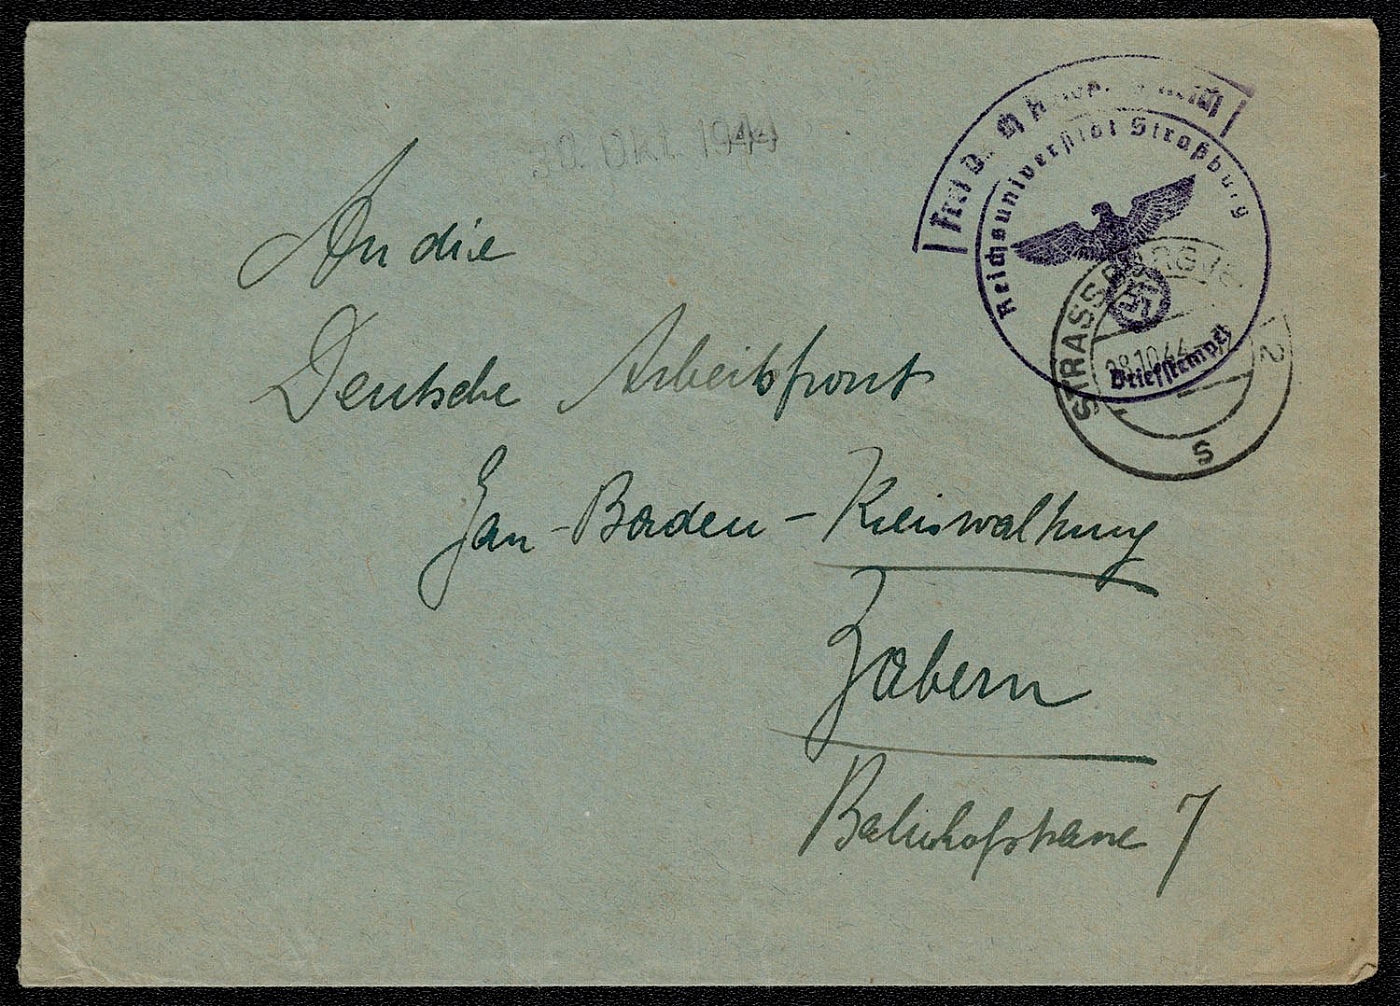 30. Okt. 1944
Frei D
Reichsuniversität Straßburg
Briefstempel
STRASSBURG
28.10.44
2
s
An die
Deutsche Arbeitsfront
Gau-Baden-Kreiswaltung
Zabern
Bahnhofstrasse 7